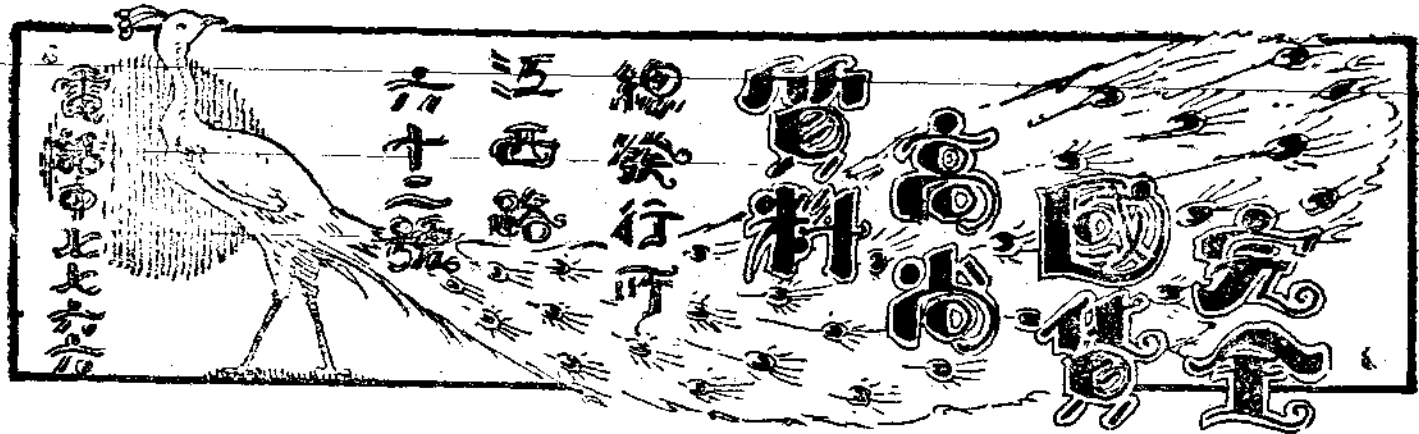 完全
國貨
高尚
質料
總發行所
江西路
六十二號
電話中七七六六